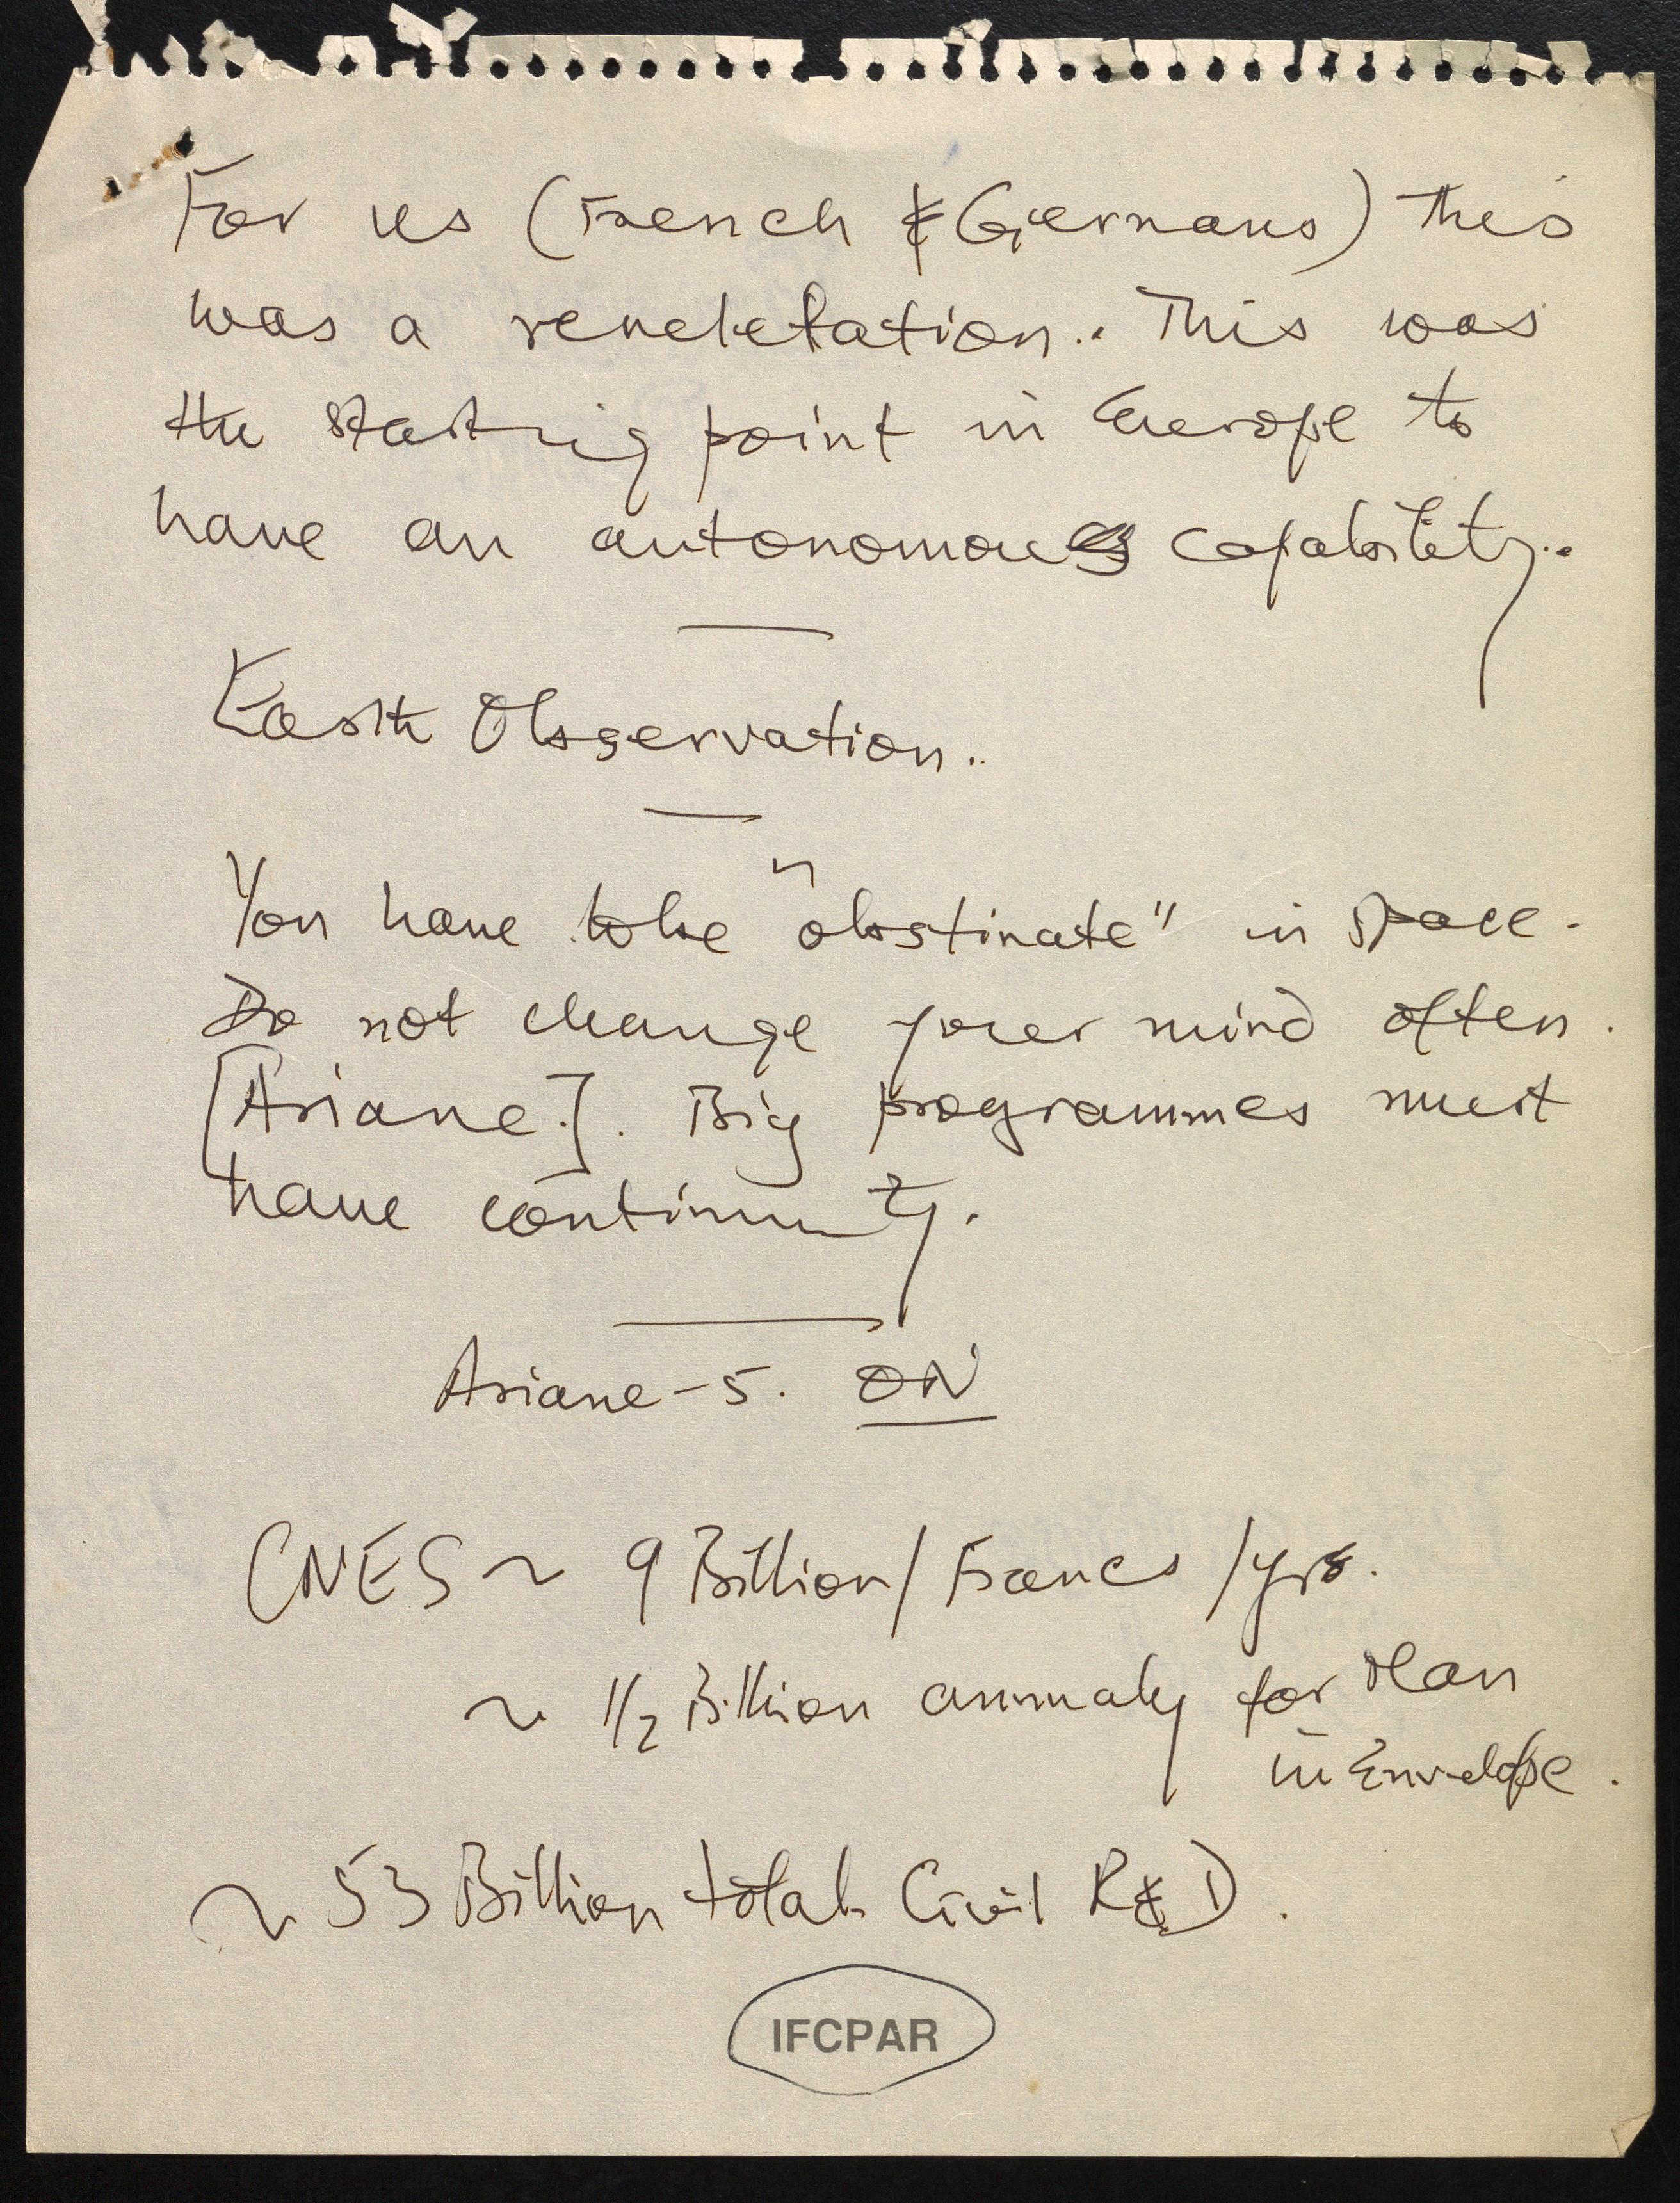 For us (French & Germans) this
was a revelation.. This was
the starting point in Europe to
have an autonomous capability..
Earth Observation..
You have to be "obstinate" in space.
Do not change your mind often.
[Ariane.]. Big programmes must
have continuity.
Ariane-5. ON
CNES ~ 9 Billion/Francs/yr.
~ 1/2 Billion annualy for
in Envelope.
~ 53 Billion total Civil R&D.
IFCPAR